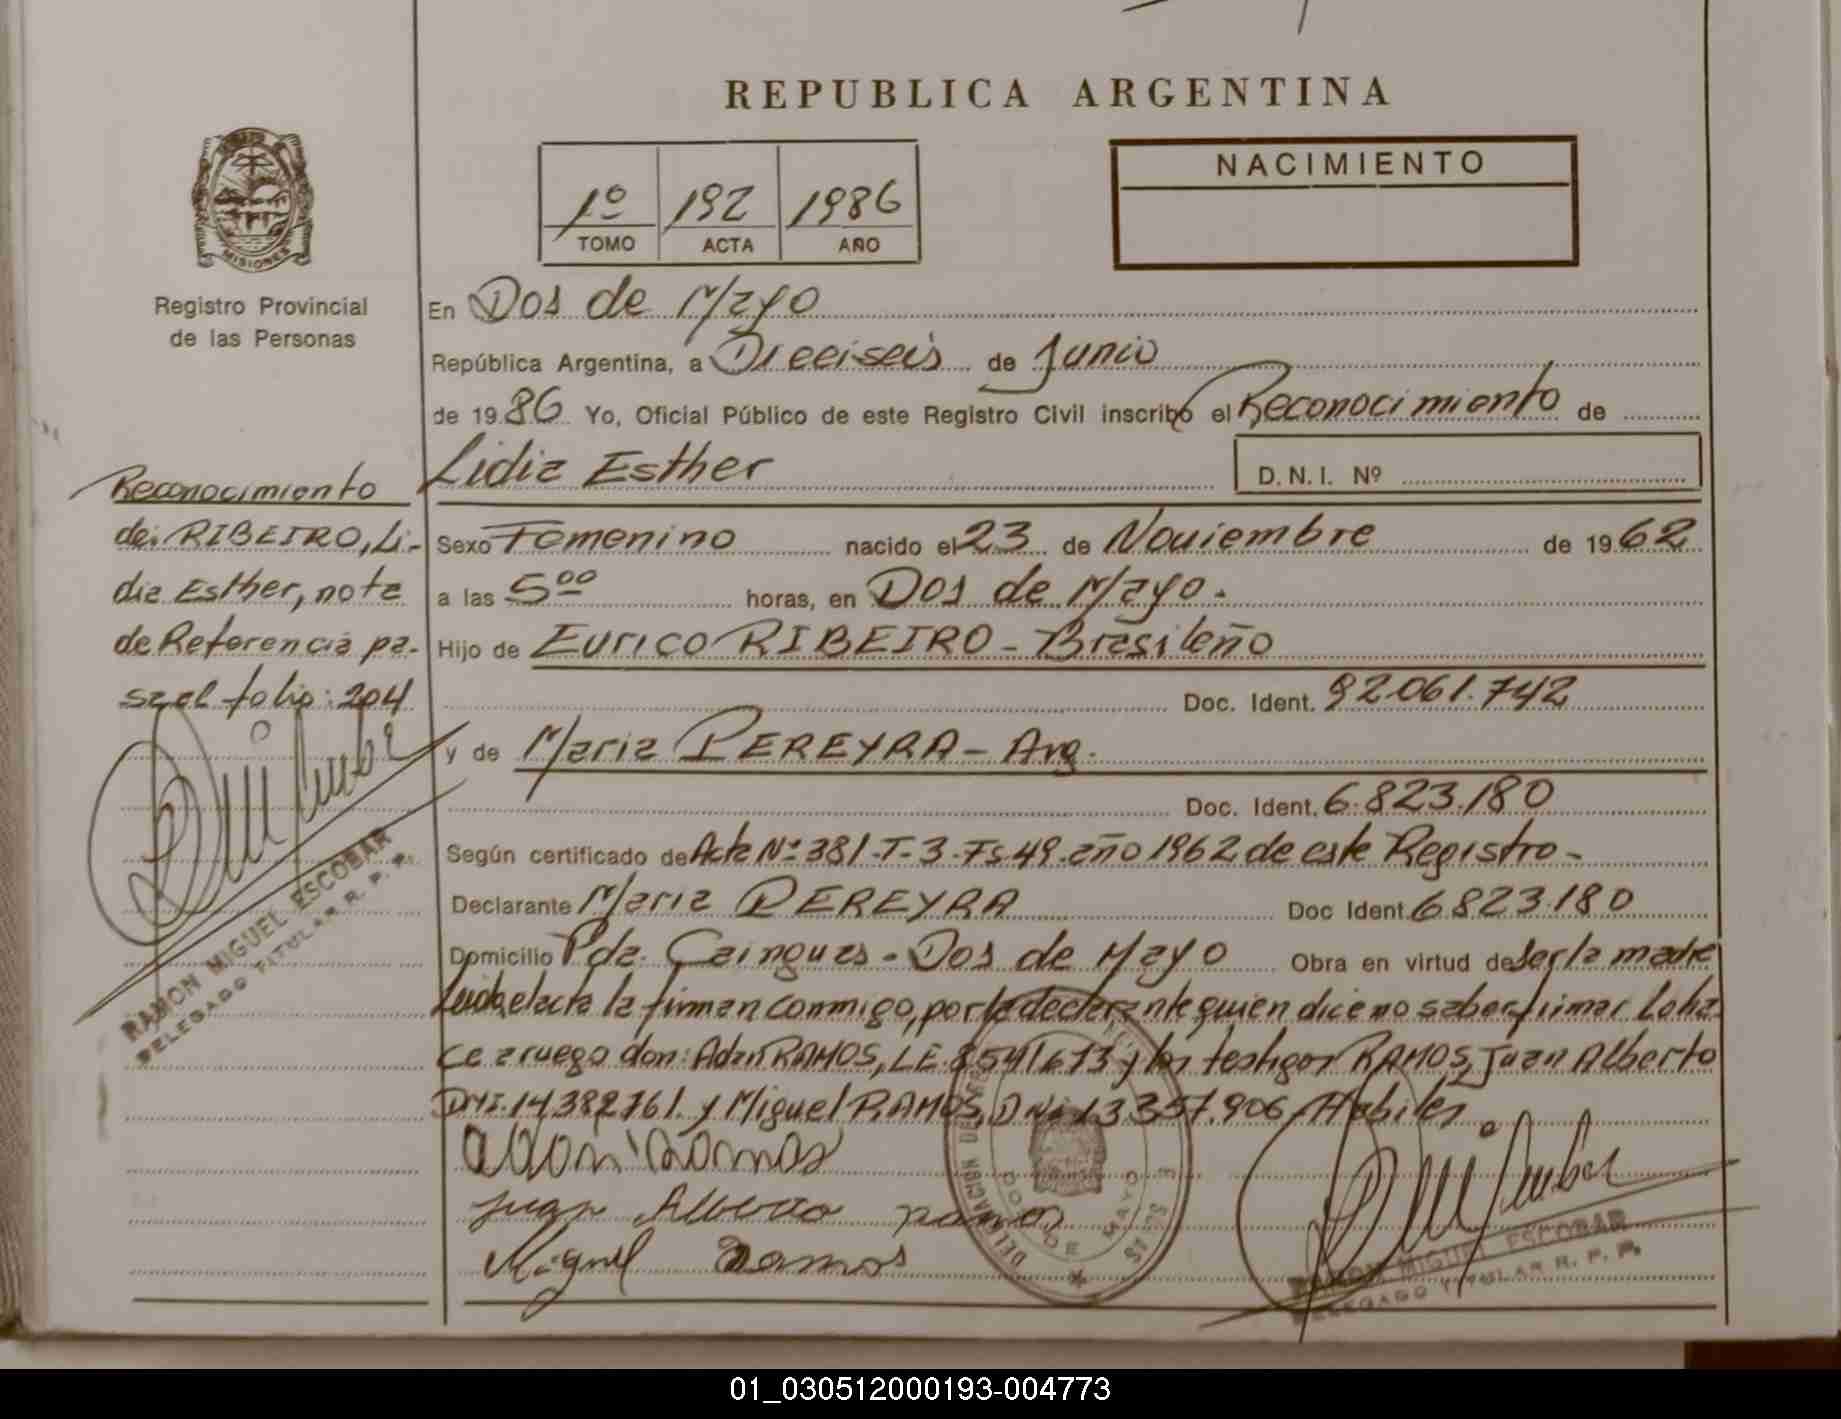 REPUBLICA ARGENTINA
MISIONES
Registro Provincial
de las Personas
1º 192 1986
TOMO ACTA AÑO
NACIMIENTO
En Dos de Mayo
República Argentina, a Dieciseis de Junio
de 1986 Yo, Oficial Público de este Registro Civil inscribo el Reconocimiento de
Lidia Esther
D.N.I. Nº
Sexo Femenino nacido el 23 de Noviembre de 1962
a las 5⁰⁰ horas, en Dos de Mayo.
Hijo de Eurico RIBEIRO - Brasileño
Doc. Ident. 92.061.742
y de Maria PEREYRA - Arg.
Doc. Ident. 6.823.180
Según certificado de Acta Nº 381-T-3-Fs 49-año 1962 de este Registro-
Declarante Maria PEREYRA Doc Ident 6.823.180
Domicilio Pda. Cainguas - Dos de Mayo Obra en virtud de ser la madre
Leida el acta la firman conmigo, por la declarante quien dice no saber firmar lo ha-
ce a ruego don: Adan RAMOS, LE. 8.541.673 y los testigos RAMOS, Juan Alberto
DNI. 14.382.761. y Miguel RAMOS, DNI. 13.357.906, Habiles.
Adan Ramos
Juan Alberto Ramos
Miguel Ramos
DELEGACION
DOS DE MAYO
RAMON MIGUEL ESCOBAR
DELEGADO TITULAR R. P. P.
Reconocimiento
de: RIBEIRO, Li-
dia Esther, nota
de Referencia pa-
sa al folio: 204
RAMON MIGUEL ESCOBAR
DELEGADO TITULAR R. P. P.
01_030512000193-004773